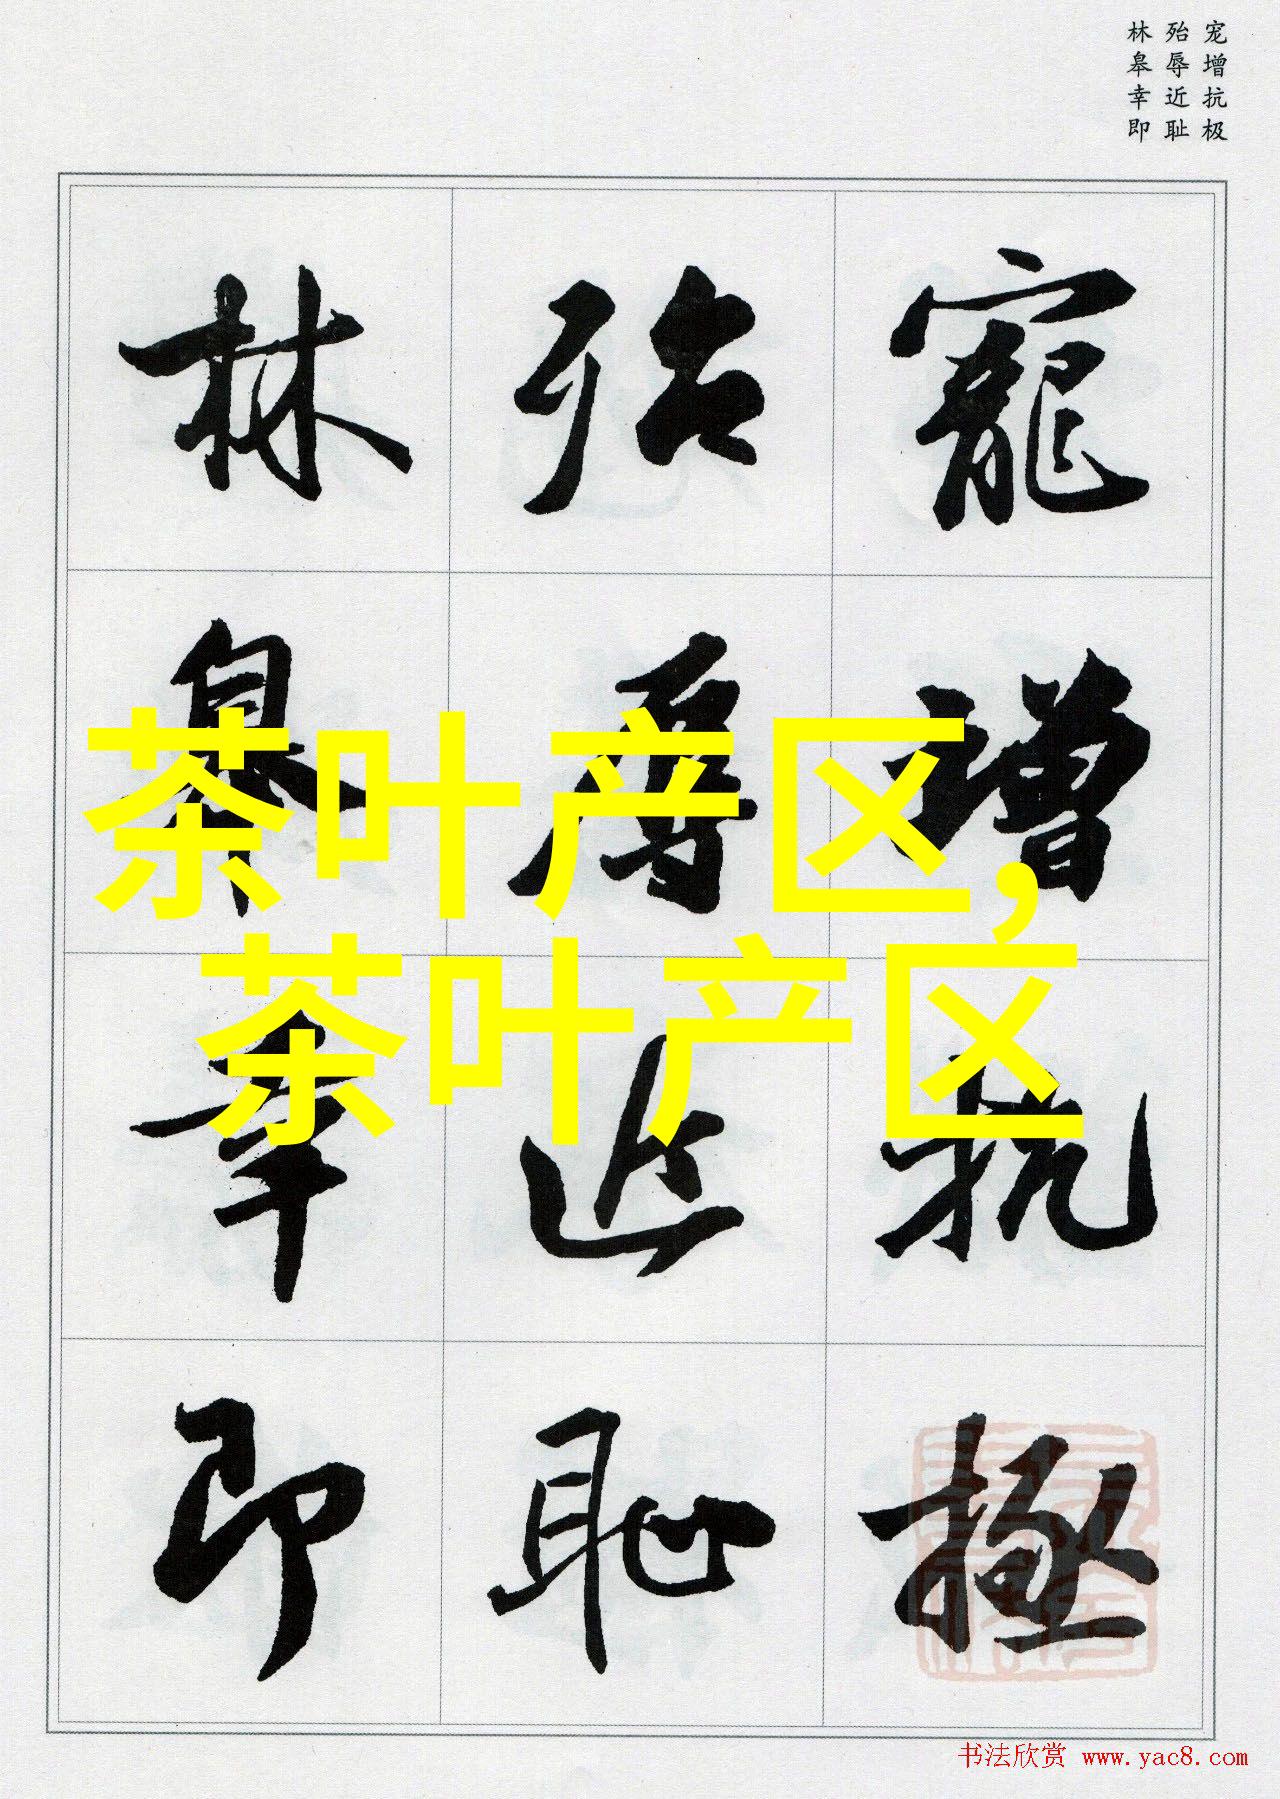 宠增抗极
殆辱近耻
林皋幸即
寵增抗極
殆辱近恥
林皋幸即
茶叶产区,
茶叶产区
书法欣赏 www.yac8.com